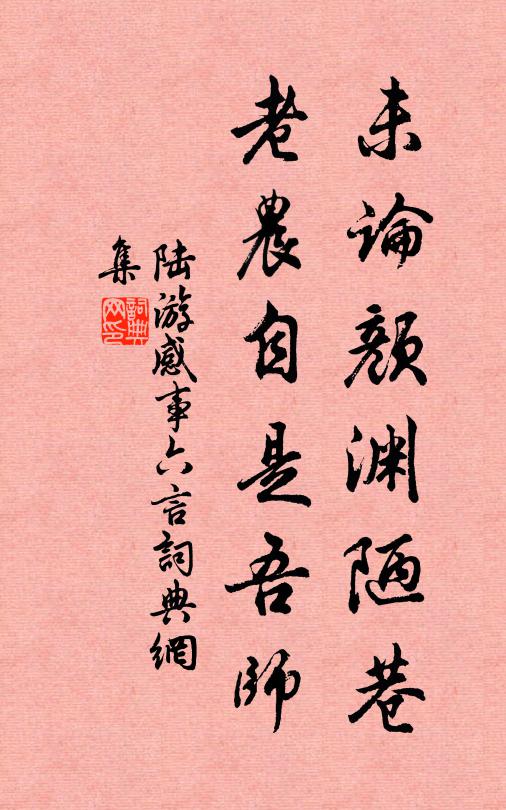 未論顏渊陋巷
老農自是吾師
陆游感事六言詞典網
集
詞典网印